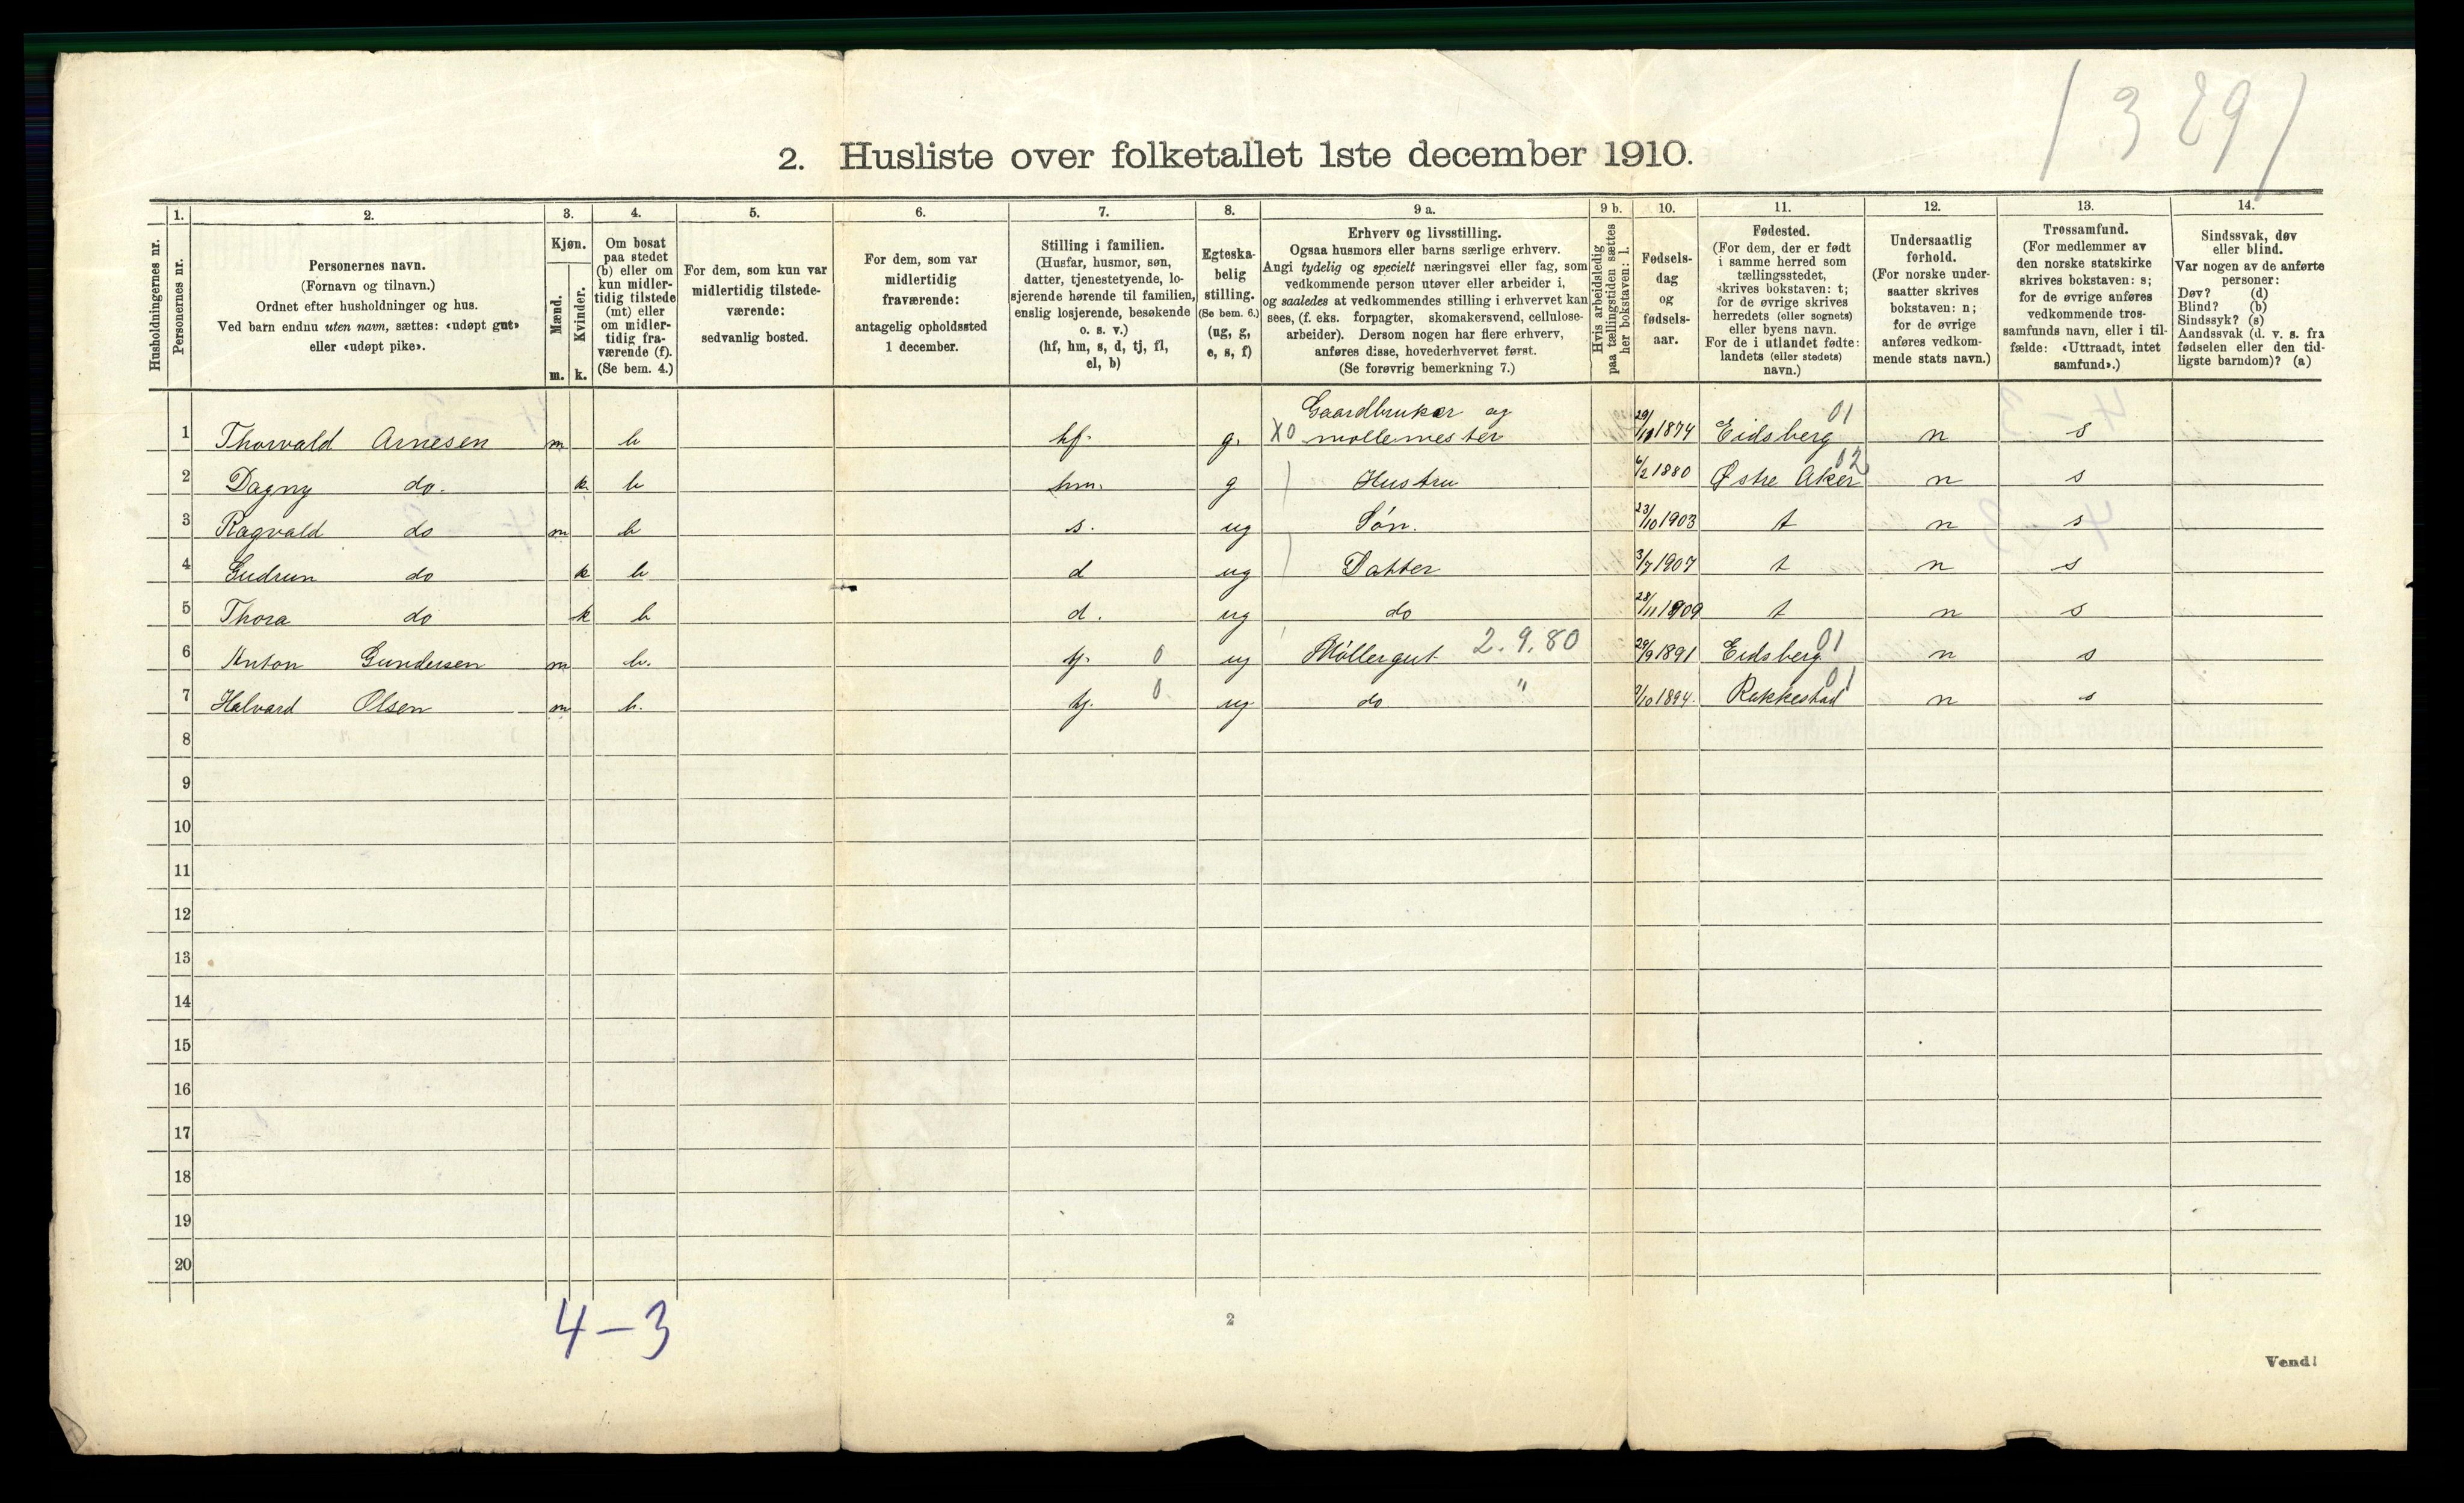 / 3 29 /
2. Husliste over folketallet 1ste december 1910.
Husholdningernes nr.
1.
Personernes nr.
2.
Personernes navn.
(Fornavn og tilnavn.)
Ordnet efter husholdninger og hus.
Ved barn endnu uten navn, sættes: «udøpt gut»
eller «udøpt pike».
3.
Kjøn.
Mænd.
m.
Kvinder.
k.
4.
Om bosat
paa stedet
(b) eller om
kun midler-
tidig tilstede
(mt) eller
om midler-
tidig fra-
værende (f).
(Se bem. 4.)
5.
For dem, som kun var
midlertidig tilstede-
værende:
sedvanlig bosted.
6.
For dem, som var
midlertidig
fraværende:
antagelig opholdssted
1 december.
7.
Stilling i familien.
(Husfar, husmor, søn,
datter, tjenestetyende, lo-
sjerende hørende til familien,
enslig losjerende, besøkende
o. s. v.)
(hf, hm, s, d, tj, fl,
el, b)
8.
Egteska-
belig
stilling.
(Se bem. 6.)
(ug, g,
e, s, f)
9 a.
Erhverv og livsstilling.
Ogsaa husmors eller barns særlige erhverv.
Angi tydelig og specielt næringsvei eller fag, som
vedkommende person utøver eller arbeider i,
og saaledes at vedkommendes stilling i erhvervet kan
sees, (f. eks. forpagter, skomakersvend, cellulose-
arbeider). Dersom nogen har flere erhverv,
anføres disse, hovederhvervet først.
(Se forøvrig bemerkning 7.)
9 b.
Hvis arbeidsledig
paa tællingstiden sættes
her bokstaven: l.
10.
Fødsels-
dag
og
fødsels-
aar.
11.
Fødested.
(For dem, der er født
i samme herred som
tællingsstedet,
skrives bokstaven: t;
for de øvrige skrives
herredets (eller sognets)
eller byens navn.
For de i utlandet fødte:
landets (eller stedets)
navn.)
12.
Undersaatlig
forhold.
(For norske under-
saatter skrives
bokstaven: n;
for de øvrige
anføres vedkom-
mende stats navn.)
13.
Trossamfund.
(For medlemmer av
den norske statskirke
skrives bokstaven: s;
for de øvrige anføres
vedkommende tros-
samfunds navn, eller i til-
fælde: «Uttraadt, intet
samfund».)
14.
Sindssvak, døv
eller blind.
Var nogen av de anførte
personer:
Døv? (d)
Blind? (b)
Sindssyk? (s)
Aandssvak (d. v. s. fra
fødselen eller den tid-
ligste barndom)? (a)
Gaardbruker og 01
1 Thorvald Arnesen m b hf. g. X0 møllemester 29/11 1874 Eidsberg n s
2 Dagny do. k b hm. g Hustru 6/2 1880 Østre Aker 02 n s
3 Ragvald do m b s. ug Søn. 23/10 1903 t n s
4 Gudrun do k b d ug Datter 3/7 1907 t n s
5 Thora do k b d. ug do 28/11 1909 t n s
6 Anton Gundersen m b. tj. 0 ug Møllergut 2.9.80 29/9 1891 Eidsberg 01 n s
7 Halvard Olsen m b. tj. 0 ug do " 9/10 1894. Rakkestad 01 n s
8
9
10
11
12
13
14
15
16
17
18
19
20
4-3
2
Vend!